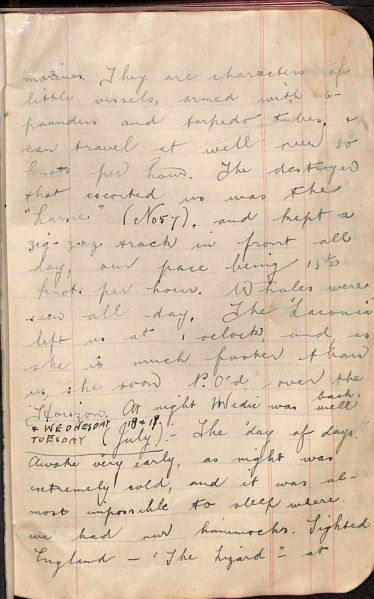 marines. They are characters of
little vessels, armed with 6-
pounders and torpedo tubes, &
can travel at well over 30
knots per hour. The destroyer
that escorted us was the
"Larne" (No 57), and kept a
zig-zag track in front all
day, our pace being 13½
knots per hour. Whales were
seen all day. The "Laconia"
left us at 1 oclock, and as
she is much faster than
us, she soon P.O'd over the
Horizon. At night Medic was well
back.
& WEDNESDAY 18 & 19
TUESDAY (July). - The "day of days."
Awoke very early, as night was
extremely cold, and it was al-
most impossible to sleep where
we had our hammocks. Sighted
England - "The lizard" - at